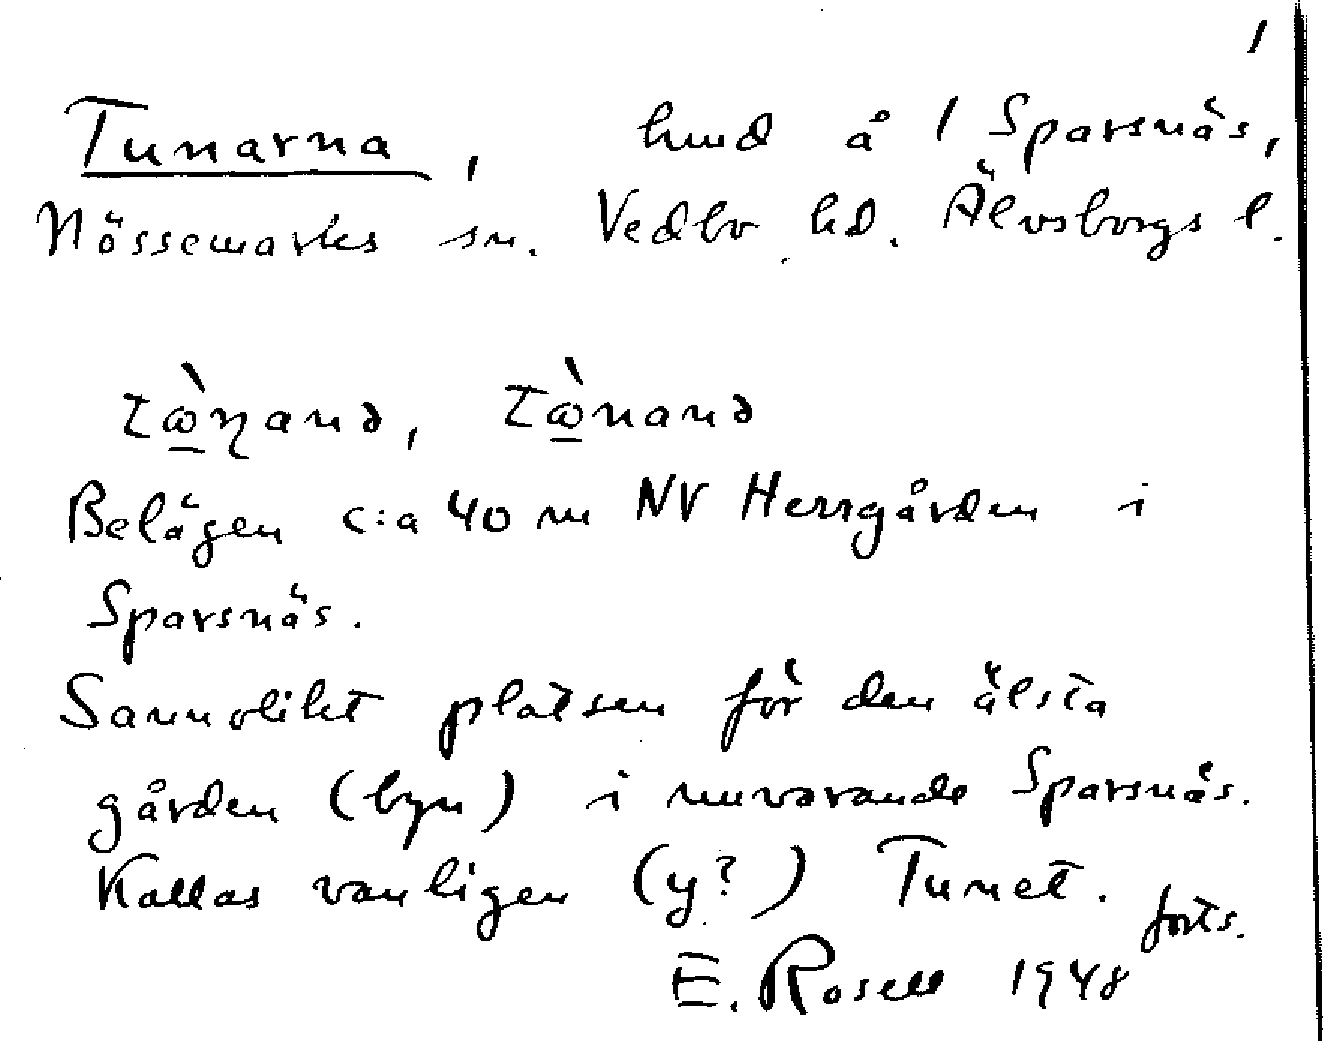 1
Tunarna, hmd å 1 Sparsnäs,
Nössemarks sn. Vedbo hd. Älvsborgs l.
tὼ̲ɳanə, tὼ̲nanə
Belägen c:a 40 m NV Herrgården i
Sparsnäs.
Sannolikt platsen för den älsta
gården (byn) i nuvarande Sparsnäs.
Kallas vanligen (y?) Tunet.
forts.
E. Rosell 1948